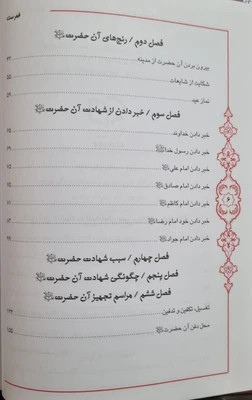 فهرست
فصل دوم / رنج‌های آن حضرت
بیرون بردن آن حضرت از مدینه
شکایت از شایعات
نماز عید
فصل سوم / خبر دادن از شهادت آن حضرت
خبر دادن خداوند
خبر دادن رسول خدا
خبر دادن امام علی
خبر دادن امام صادق
خبر دادن امام کاظم
خبر دادن خود امام رضا
خبر دادن امام جواد
فصل چهارم / سبب شهادت حضرت
فصل پنجم / چگونگی شهادت آن حضرت
فصل ششم / مراسم تجهیز آن حضرت
تغسیل، تکفین و تدفین
محل دفن آن حضرت